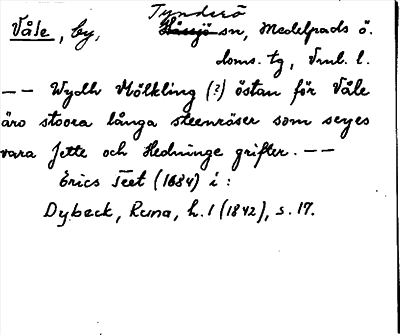 Tynderö
Våle, by, Hässjö sn, Medelpads ö.
doms. tg, Vnl. l.
-- Wydh Mölkling (?) östan för Våle
äro stoora långa steenröser som seyes
vara Jette och Hedninge grifter. --
Erics Teet (1684) i :
Dybeck, Runa, h. 1 (1842), s. 17.